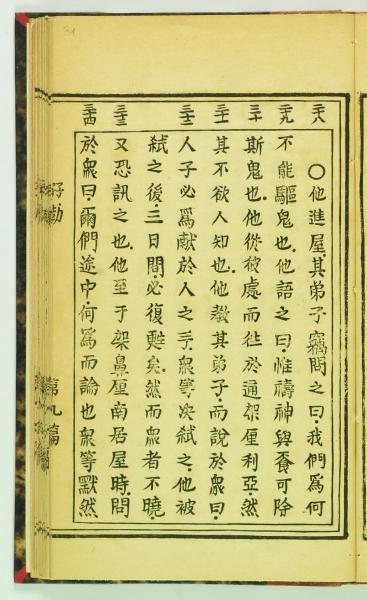 二八
二九
三十
三一
三二
三三
三四
○他進屋其弟子竊問之曰我們爲何
不能驅鬼也他語之曰惟禱神與齋可除
斯鬼也他從彼處而徃於通架厘利亞然
其不欲人知也他教其弟子而說於衆曰
人子必爲獻於人之手衆等次弒之他被
弒之後三日間必復甦矣然而衆者不曉
又恐訊之也他至于架鼻厘南居屋時問
於衆曰爾們途中何爲而論也衆等默然
第九篇
34